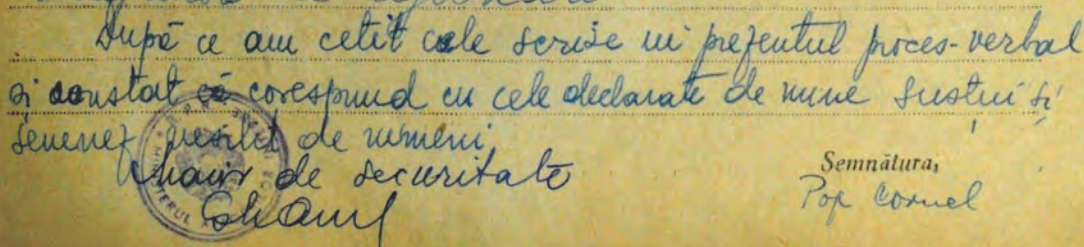 După ce am cetit cele scrise in prezentul proces-verbal
și constat că corespund cu cele declarate de mine susțin și
semnez nesilit de nimeni.
Semnătura,
Maior de securitate
Pop Cornel